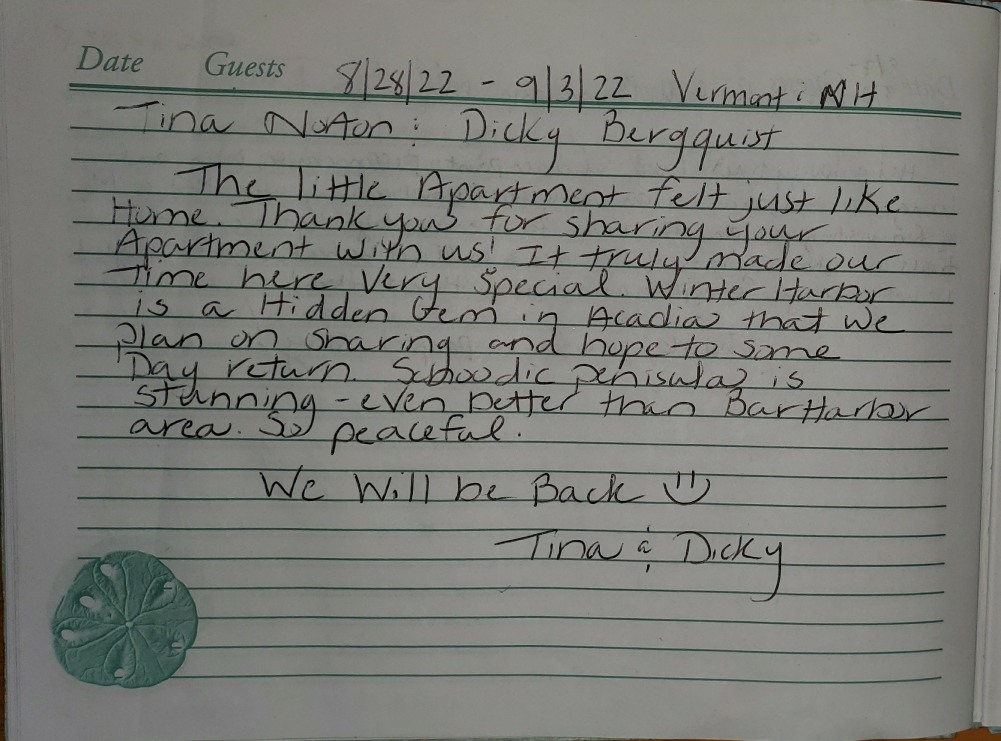 Date Guests 8/28/22 - 9/3/22 Vermont & NH
Tina Norton & Dicky Bergquist
The little Apartment felt just like
Home. Thank you for sharing your
Apartment with us! It truly made our
Time here Very Special. Winter Harbor
is a Hidden Gem in Acadia that we
plan on sharing and hope to some
Day return. Schoodic penisula is
stunning - even better than Bar Harbor
area. So peaceful.
We Will be Back
Tina & Dicky